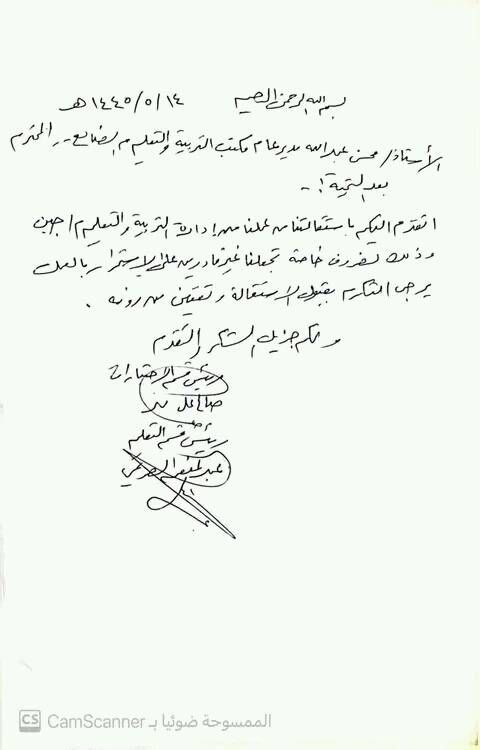 بسم الله الرحمن الرحيم ١٤/٥/١٤٤٥هـ
الأستاذ/ محسن عبدالله مدير عام مكتب التربية والتعليم م الضالع -- المحترم
بعد التحية! --
اتقدم اليكم باستقالتنا من عملنا من إدارة التربية والتعليم م/جبن
وذلك لظروف خاصة تجعلنا غير قادرين على الاستمرار بالعمل
يرجى التكرم بقبول الاستقالة و من يرونه .
ولكم جزيل الشكر والتقدم
رئيس قسم الاختبارات
صالح علي
رئيس قسم التعليم
عبد
CS CamScanner الممسوحة ضوئيا بـ